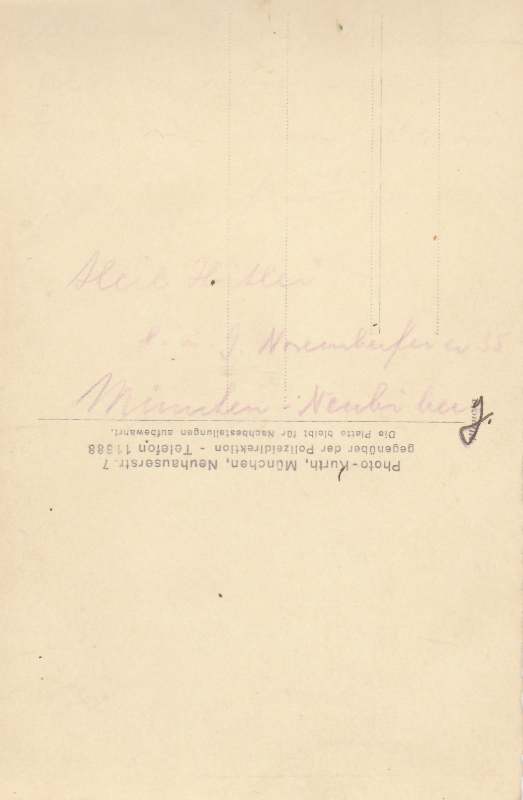 Heil Hitler
8. u. 9. Novemberfeier 35
München - Neubiberg.
Photo-Kurth, München, Neuhauserstr. 7
gegenüber der Polizeidirektion - Telefon 11388
Die Platte bleibt für Nachbestellungen aufbewahrt.